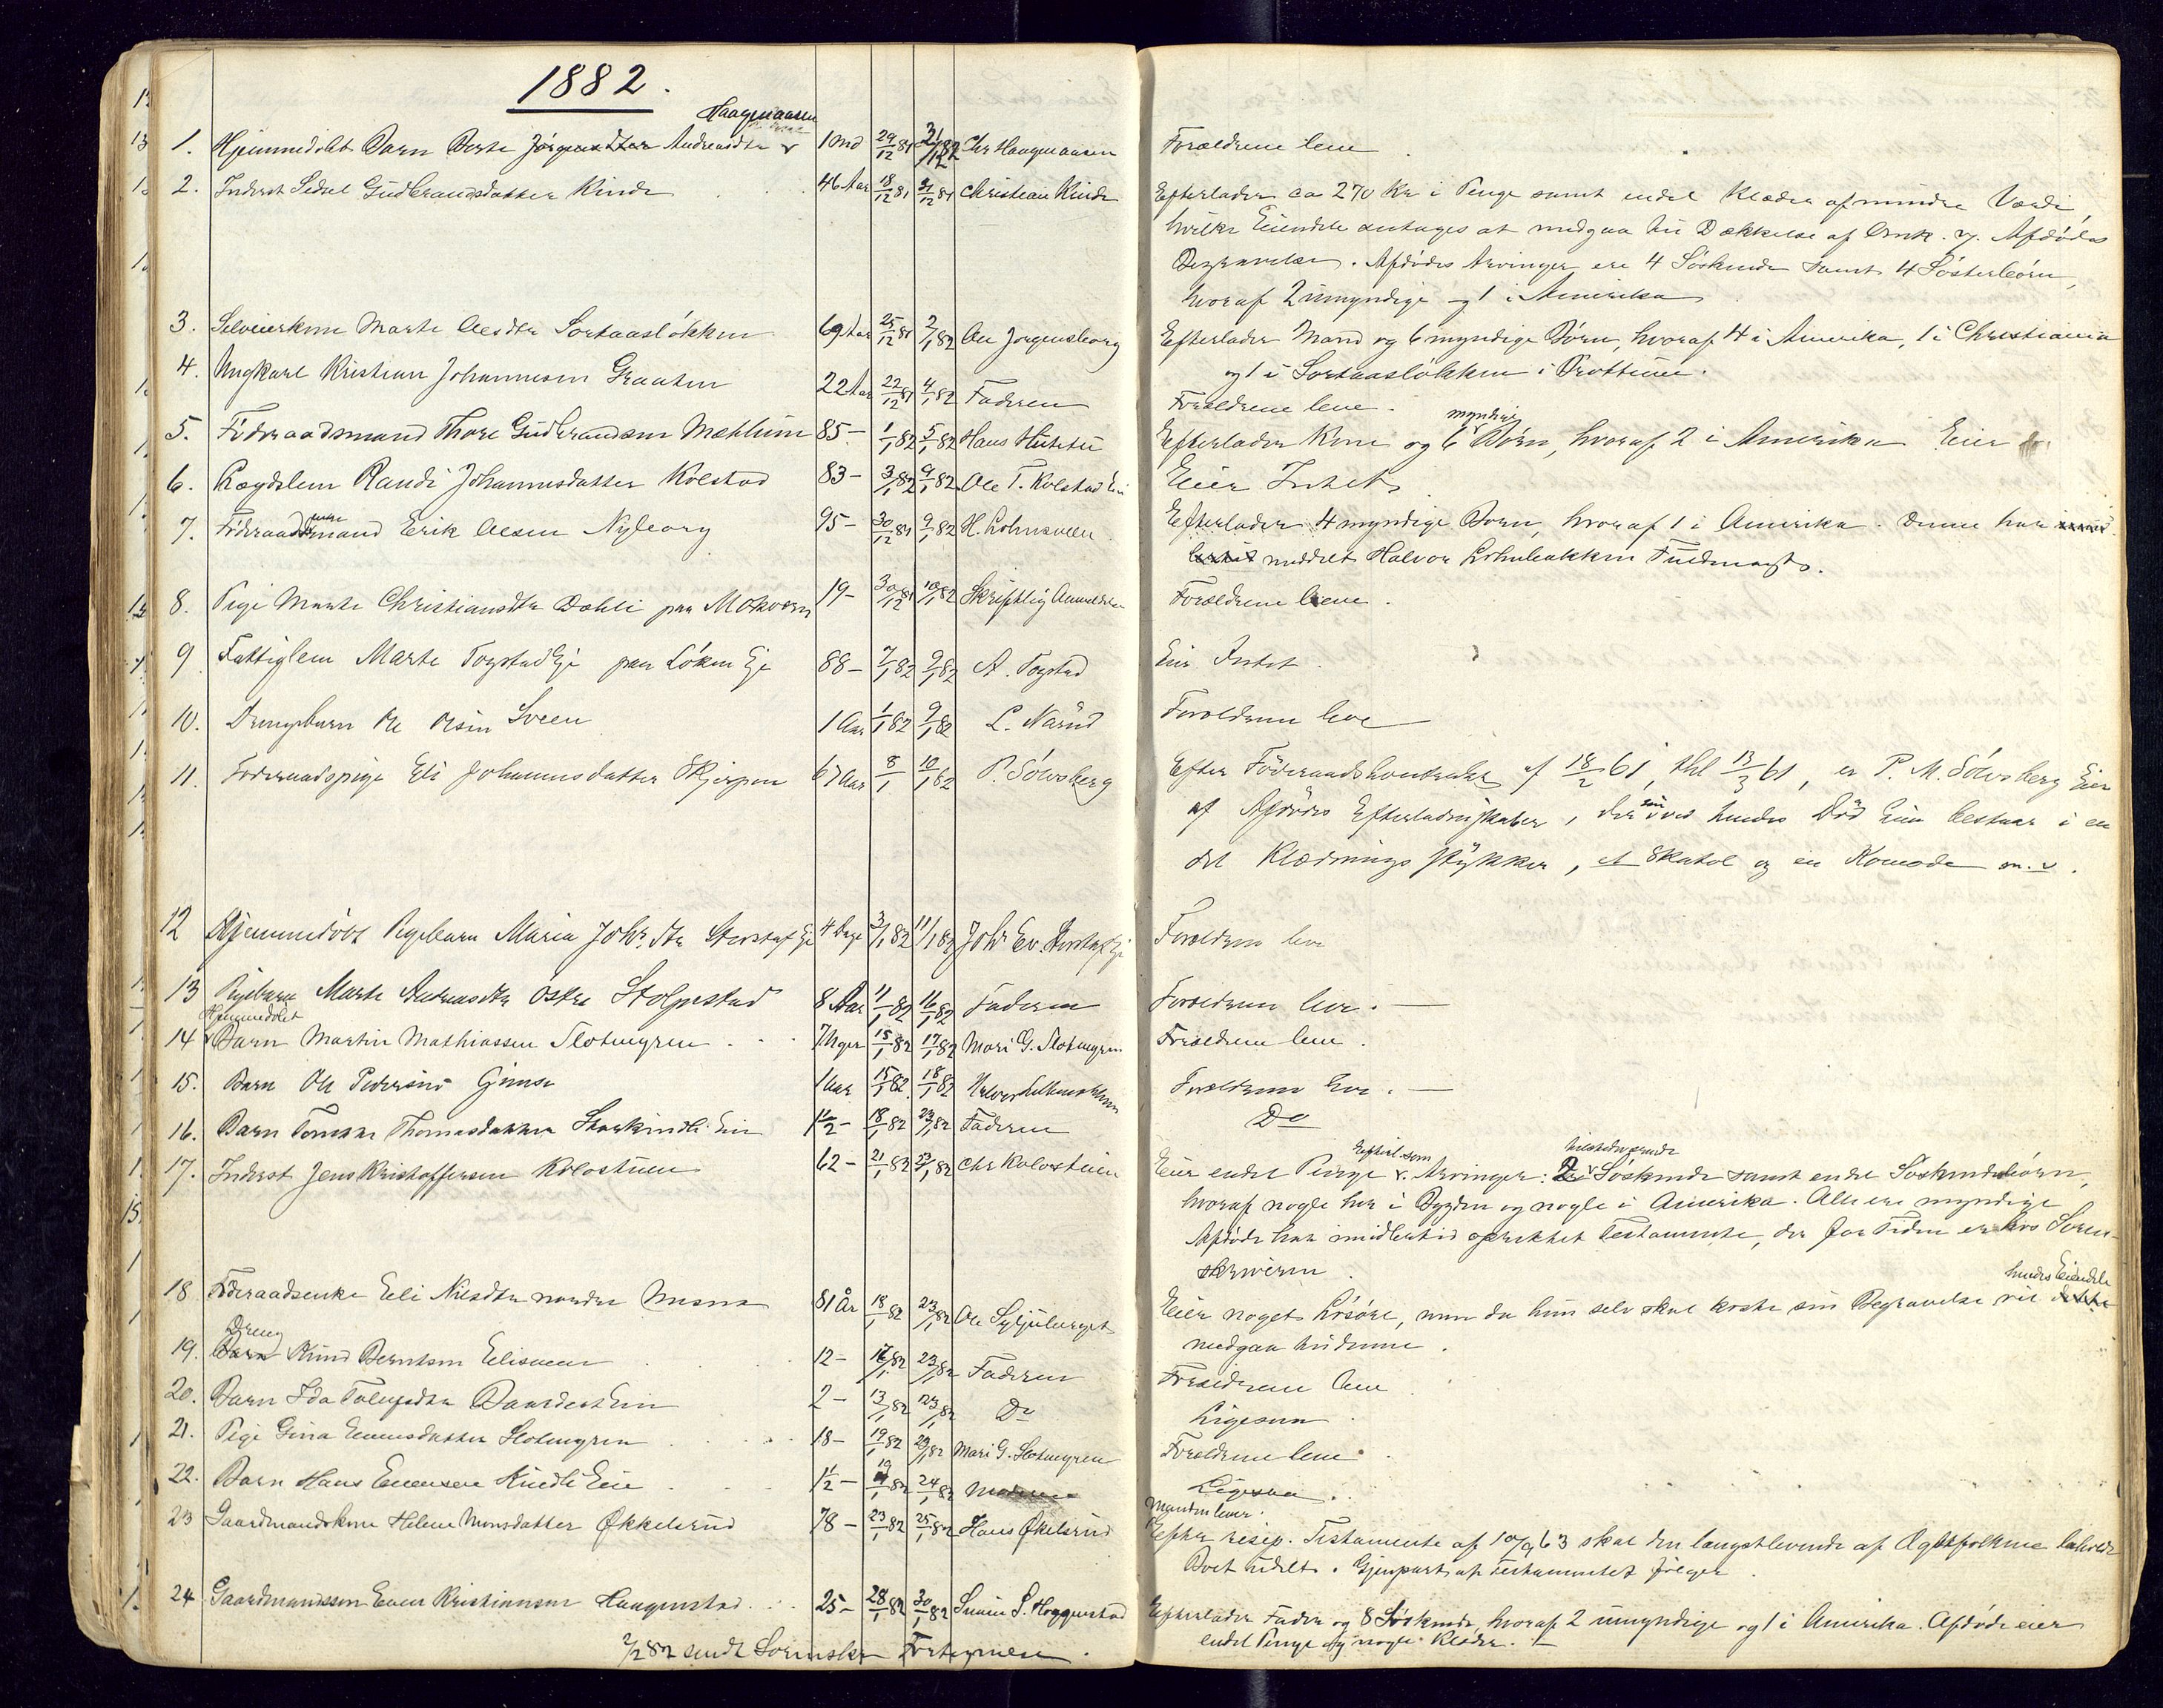 1882.
Haagenaasen
1. Hjemmedøbt Barn Berte Jørgensdtter Andreasdtr 1 Md 29/12 81 31/12 82 Chr Haagenaasen Forældrene leve
2. Inderst Sidsel Gudbrandsdatter Kinde 46 Aar 18/12 81 31/12 81 Christian Kinde Efterlader ca 270 Kr i Penge samt endel Klæder af mindre Værdi,
hvilke Eiendele antages at medgaa til Dækkelse af Omk. v. Afdødes
Begravelse. Afdødes Arvinger ere 4 Søskende samt 4 Søsterbørn,
hvoraf 2 umyndige og 1 i Amerika
3. Selveierkone Marte Olesdtr Sortaasløkken 69 Aar 25/12 81 2/1 82 Ole Jørgensborg Efterlader Mand og 6 myndige Børn, hvoraf 4 i Amerika, 1 i Christiania
og 1 i Sortaasløkken i Brøttum.
4. Ungkarl Kristian Johannesen Graaten 22 Aar 22/12 81 4/1 82 Faderen Forældrene leve.
5. Føderaadsmand Thore Gudbrandsen Mæhlum 85 - 1/1 82 5/1 82 Hans Efterlader Kone og 6 myndige Børn, hvoraf 2 i Amerika Eier
6. Lægdslem Randi Johannesdatter Kolstad 83 - 3/1 82 9/1 82 Ole T. Kolstad Ei Eier Intet
7. Føderaadsmand Erik Olesen Nyborg 95 - 30/12 81 9/1 82 H. Lohnsveen Efterlader 4 myndige Børn, hvoraf 1 i Amerika. Denne har
meddelt Halvor Lohnbakken Fuldmagt.
8. Pige Marte Christiansdtr Dæhli paa Mokvern 19 - 30/12 81 10/1 82 Skriftlig Anmeldelse Forældrene leve.
9 Fattiglem Marte Fogstad Eje paa Løken Eje 88 - 7/1 82 9/1 82 A. Fogstad Eier Intet.
10. Drengebarn Ole Olsen Sveen 1 Aar 1/1 82 9/1 82 L. Narud Forældrene leve
11. Føderaadspige Eli Johannesdatter Skjerpen 67 Aar 8/1 10/1 82 P. Sølvsberg Efter Føderaadskontrakt af 18/2 61, thl 13/3 61, er P. M. Sølvsberg Eier
af Afdødes Efterladenskaber, der ved hendes Død kun bestaar i en
del Klædningsstykker, et Skatol og en Komode m. v.
12 Hjemmedøbt Pigebarn Maria Johs dtr Storstaf Eje 4 Dage 3/1 82 11/1 82 Johs Ev. Storstaf Eje Forældrene leve
13 Pigebarn Marte Andreasdtr Østre Stolpestad 8 Aar 11/1 82 16/1 82 Faderen Forældrene leve. —
14 Hjemmedøbt Barn Martin Mathiassen Slotengren 7 Uger 15/1 82 17/1 82 Mari G. Slotengren Forældrene leve.
15. Barn Ole Pedersen 1 Aar 15/1 82 18/1 82 Halvor Forældrene leve. —
16. Barn Thomasdatter Storkindli Eie 1 1/2 - 18/1 82 23/1 82 Faderen Do
17. Inderst Jens Kristoffersen Kolostuen 62 - 21/1 82 23/1 82 Chr Kolostuen Eier endel Penge. Arvinger: 2 tilstedeværende Søskende samt endel Søskendebørn,
hvoraf nogle her i Bygden og nogle i Amerika. Alle ere myndige
Afdøde har imidlertid oprettet Testamente, der for Tiden er hos Soren-
skriveren.
18. Føderaadsenke Eli Nilsdtr nordre Mesna 81 År 18/1 82 23/1 82 Ole Syljuberget Eier noget Løsøre, men da hun selv skal koste sin Begravelse vil hendes Eiendele
medgaa hertil.
19. Dreng Knud Berntsen Eliasveen 12 - 17/1 82 23/1 82 Faderen Forældrene leve
20. Barn Ida Tolefsdtr Baardset Eie 2 - 13/1 82 23/1 82 Do Ligesaa
21. Pige Gina Evensdatter Slotengren 18 - 19/1 82 23/1 82 Mari G. Slotengren Forældrene leve.
22. Barn Hans Evensen Kindli Eie 1 1/2 - 19/1 82 24/1 82 Moderen Ligesaa.
Manden lever.
23 Gaardmandskone Helene Monsdatter Økkelsrud 78 - 23/1 82 25/1 82 Hans Økelsrud Efter resip. Testamente af 10/9 63 skal den længstlevende af Ægtefolkene beholde
Boet udelt. Gjenpart af Testamentet følger.
24 Gaardmandssøn Even Kristiansen Haagenstad 25 - 28/1 82 30/1 82 Simen S. Haggenstad Efterlader Fader og 8 Søskende, hvoraf 2 umyndige og 1 i Amerika. Afdøde eier
endel Penge og nogle Klæder. —
2/2 82 sendt Sorenskr Fortegnelse.